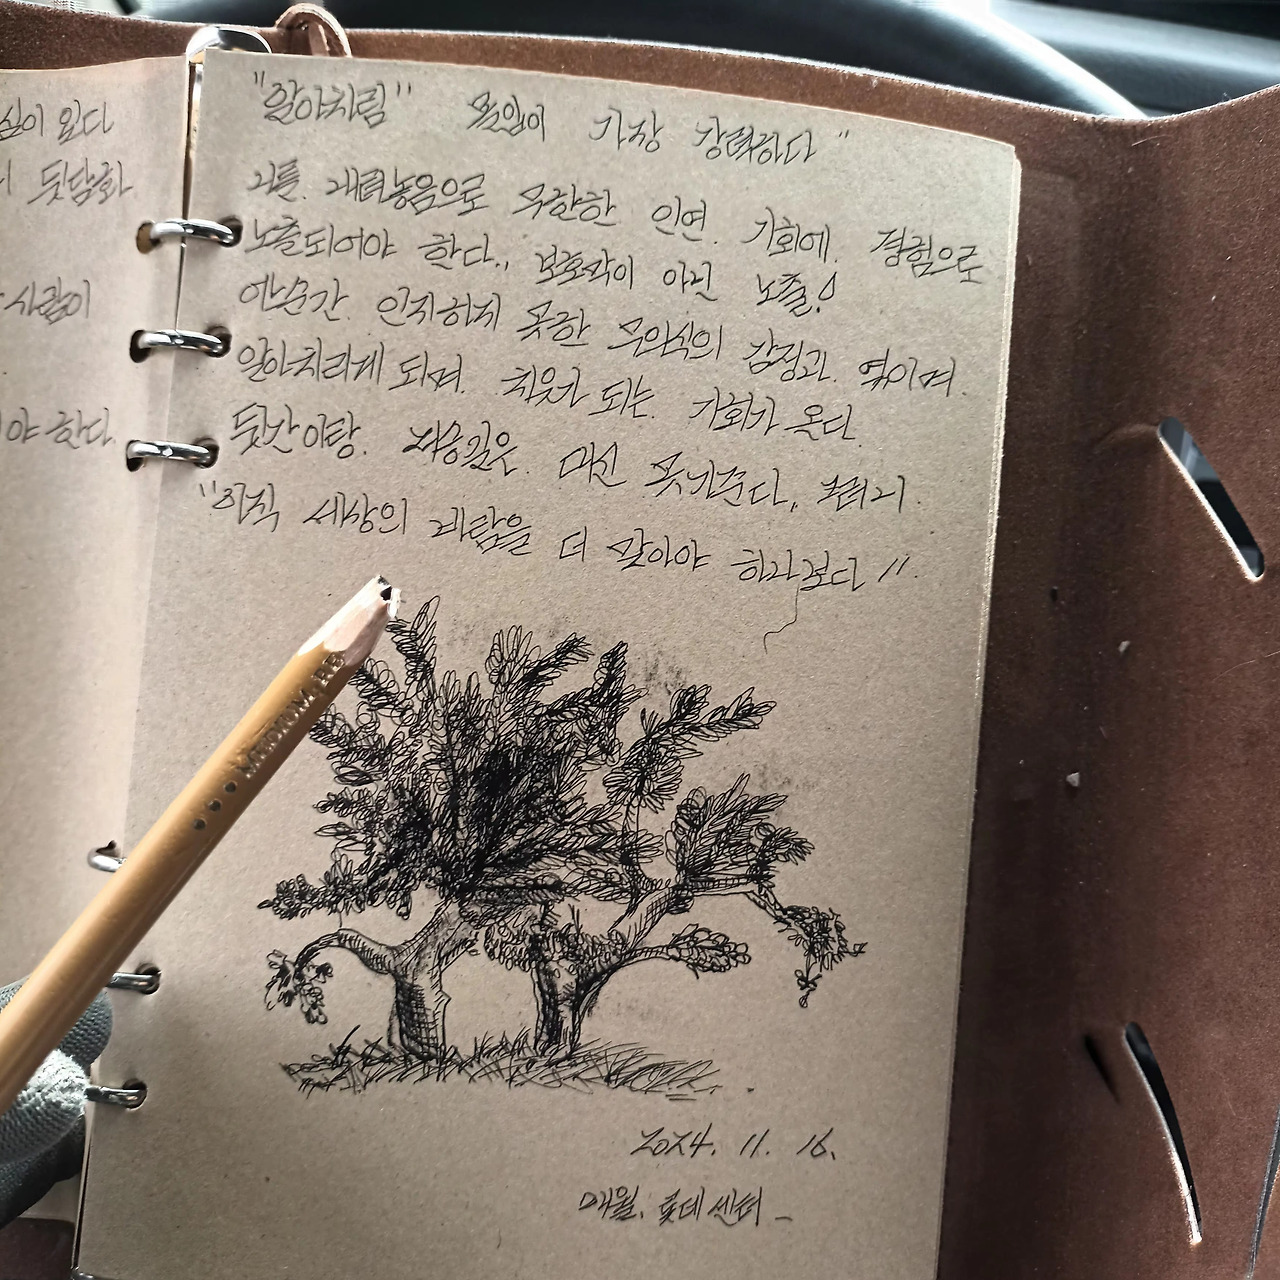 심이 있다
뒷담화
사람이
야 한다.
"알아차림" 몰입이 가장 강력하다"
나를. 내려놓음으로 무한한 인연. 기회에. 경험으로
노출되어야 한다., 보호막이 아닌 노출!
순간. 인지하지 못한 무의식의 감정과. 엮이며.
알아차리게 되며. 치워지 되는. 기회가 온다.
뒷산이랑.
"아직 세상의 바람을 더 맞아야 하나보다"
MEDIUM
2024. 11. 16.
매월. 롯데센터